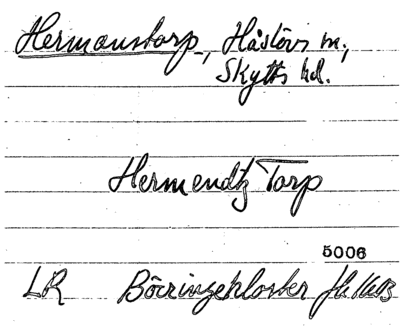 Hermanstorp, Håslövs sn,
Skytts hd.
Hermendtz Torp
5006
LR Börringekloster Jb